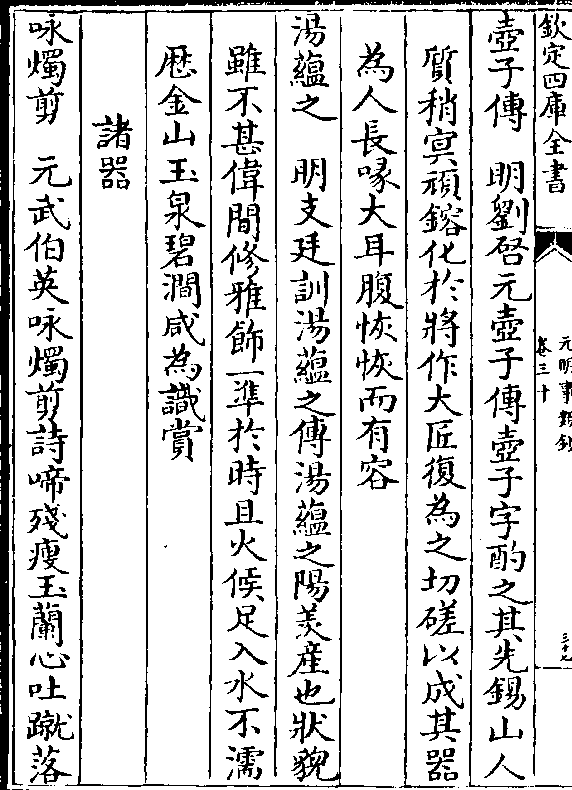 欽定四庫全書
元明事類鈔
卷三十
三十七
壺子傳　明劉啓元壺子傳壺子字酌之其先錫山人
質稍冥頑鎔化於將作大匠復為之切磋以成其器
為人長喙大耳腹恢恢而有容
湯蘊之　明支廷訓湯蘊之傳湯蘊之陽羨産也狀貌
雖不甚偉間修雅飾一準於時且火候足入水不濡
厯金山玉泉碧澗咸為識賞
諸器
咏燭剪　元武伯英咏燭剪詩啼殘瘦玉蘭心吐蹴落